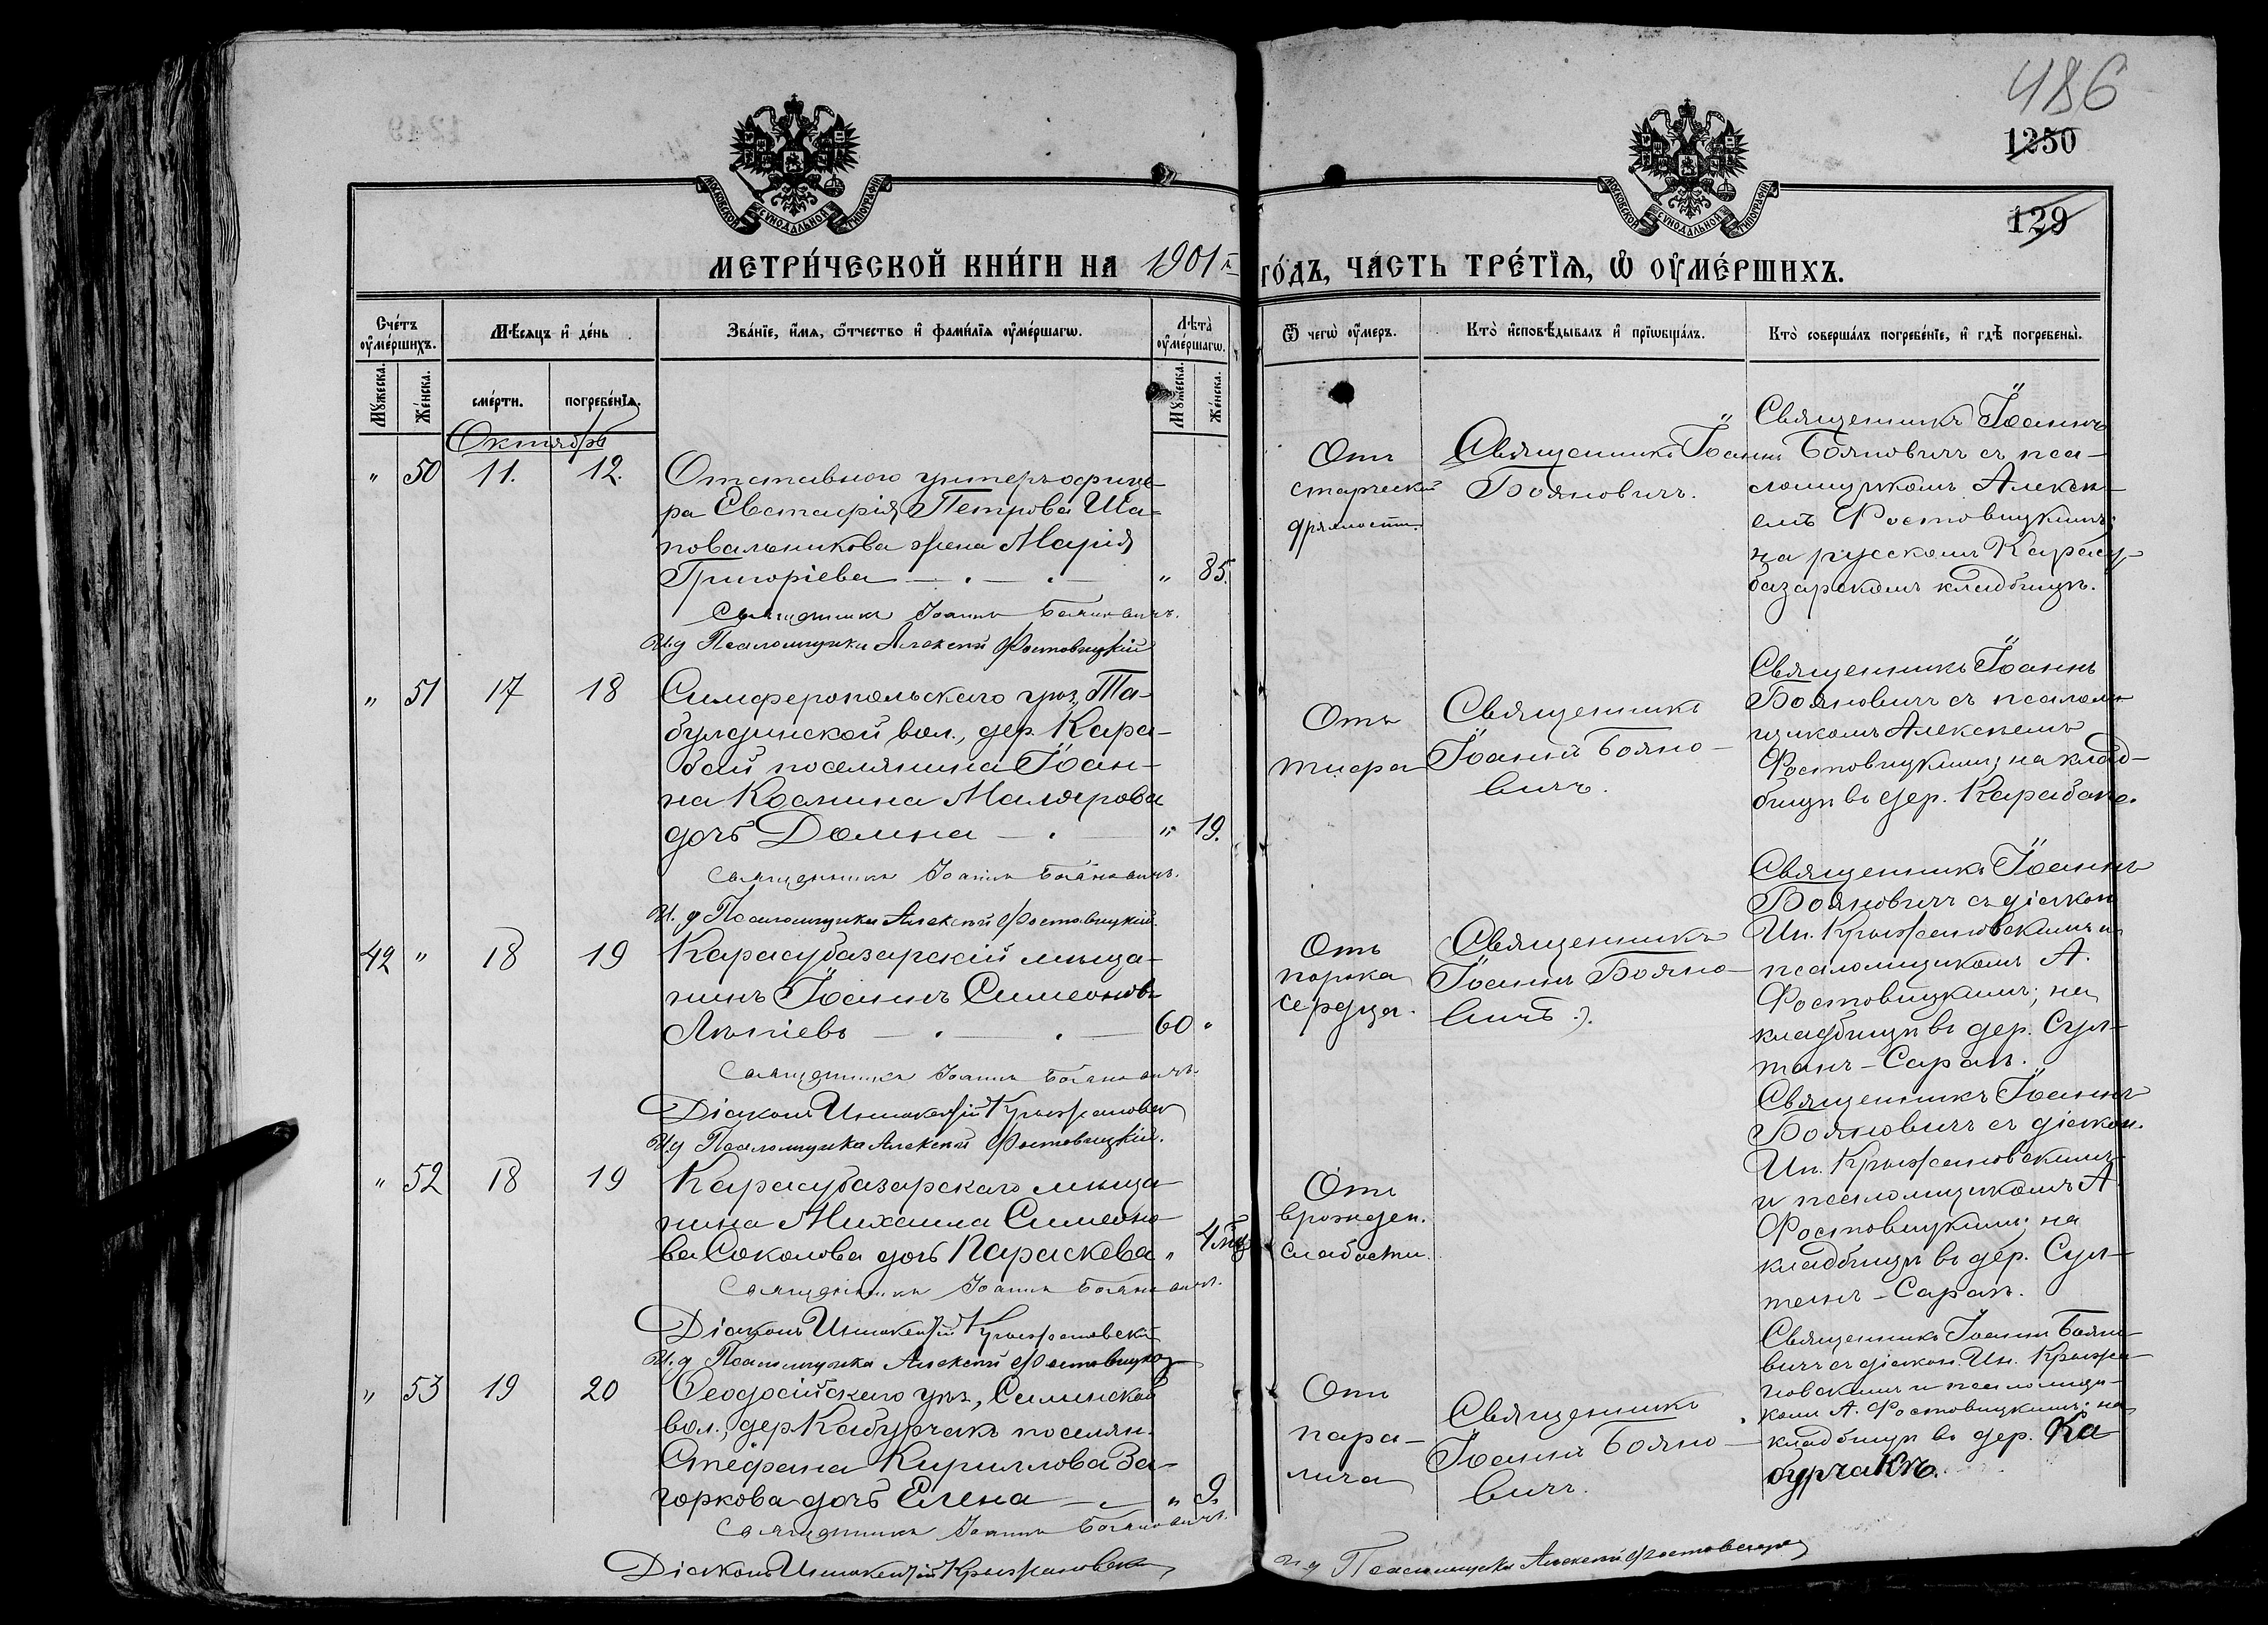 486
1250
129
1249
МОСКОВСКОЙ СУНОДАЛЬНОЙ ТИПОГРАФІИ
МОСКОВСКОЙ СУНОДАЛЬНОЙ ТИПОГРАФІИ
МЕТРИ́ЧЕСКОЙ КНИ́ГИ НА 1901й
ГО́ДЪ, ЧА́СТЬ ТРЕ́ТЇѦ, Ѡ҆ ОУ҆МЕ́РШИХЪ.
Сче́тъ оу҆ме́ршихъ.
Мѣ́сѧцъ и҆ де́нь
Зва́нїе, и҆́мѧ, ѻ҆́тчество и҆ фами́лїѧ оу҆ме́ршагѡ.
Лѣ́та оу҆ме́ршагѡ.
Ѿ чегѡ̀ оу҆́меръ.
Кто̀ и҆сповѣ́дывалъ и҆ прїѡбща́лъ.
Кто̀ соверша́лъ погребе́нїе, и҆ гдѣ̀ погребены̀.
Мꙋ́жеска.
Же́нска.
сме́рти.
погребе́нїѧ.
Мꙋ́жеска.
Же́нска.
Октябрь
" 50 11. 12.
Отставного унтеръ-офице-
ра Евстафія Петрова Ша-
повальникова жена Марія
Григоріева " 85.
Священникъ Іоаннъ Бояновичъ.
И.д Псаломщика Алексѣй Фостовицкій
Отъ
старческой
дряхлости.
Священникъ Іоаннъ
Бояновичъ.
Священникъ Іоаннъ
Бояновичъ съ пса-
ломщикомъ Алексѣ-
емъ Фостовицкимъ;
на русскомъ Карасу-
базарскомъ кладбищѣ.
" 51 17 18
Симферопольскаго уѣз., Та-
булдинской вол., дер. Кара-
бай поселянина Іоан-
на Космина Малярова
дочь Домна " 19.
Священникъ Іоаннъ Бояновичъ.
И. д Псаломщика Алексѣй Фостовицкій.
Отъ
тифа
Священникъ
Іоаннъ Бояно-
вичъ.
Священникъ Іоаннъ
Бояновичъ съ псалом-
щикомъ Алексѣемъ
Фостовицкимъ; на клад-
бищѣ въ дер. Карабаѣ.
42 " 18 19
Карасубазарскій мѣща-
нинъ Іоаннъ Симеоновъ
60 "
Священникъ Іоаннъ Бояновичъ.
Діаконъ Иннокентій Крыжановскій
И.д Псаломщика Алексѣй Фостовицкій.
Отъ
порока
сердца.
Священникъ
Іоаннъ Бояно-
вичъ.
Священникъ Іоаннъ
Бояновичъ съ діакон.
Ин. Крыжановскимъ и
псаломщикомъ А.
Фостовицкимъ; на
кладбищѣ въ дер. Сул-
танъ-Сараѣ.
" 52 18 19
Карасубазарскаго мѣща-
нина Михаила Симеоно-
ва Соколова дочь Параскева " 4 мѣс
Священникъ Іоаннъ Бояновичъ.
Діаконъ Иннокентій Крыжановскій
И.д Псаломщика Алексѣй Фостовицкій
Отъ
врожден.
слабости.
Священникъ Іоаннъ
Бояновичъ съ діакон.
Ин. Крыжановскимъ
и псаломщикомъ А
Фостовицкимъ; на
кладбищѣ въ дер. Сул-
танъ-Сараѣ.
" 53 19 20
Ѳеодосійскаго уѣз., Салынской
вол., дер Кабурчакъ поселян.
Стефана Кириллова За-
горкова дочь Елена " 9.
Священникъ Іоаннъ Бояновичъ.
Діаконъ Иннокентій Крыжановскій
Отъ
пара-
лича
Священникъ
Іоаннъ Бояно-
вичъ.
Священникъ Іоаннъ Бояно-
вичъ съ діакон. Ин. Крыжа-
новскимъ и псаломщи-
комъ А. Фостовицкимъ; на
кладбищѣ въ дер. Ка
бурчакѣ.
И.д Псаломщика Алексѣй Фостовицкій